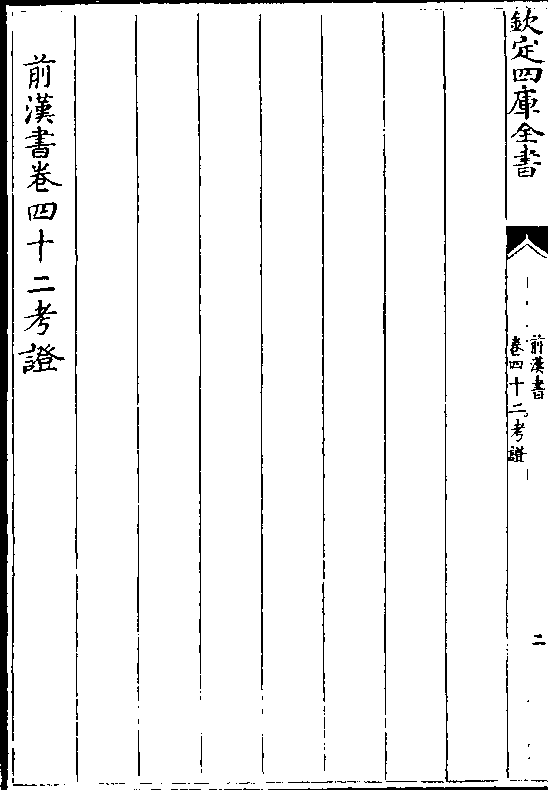 欽定四庫全書
前漢書
卷四十二考證
二
前漢書卷四十二考證